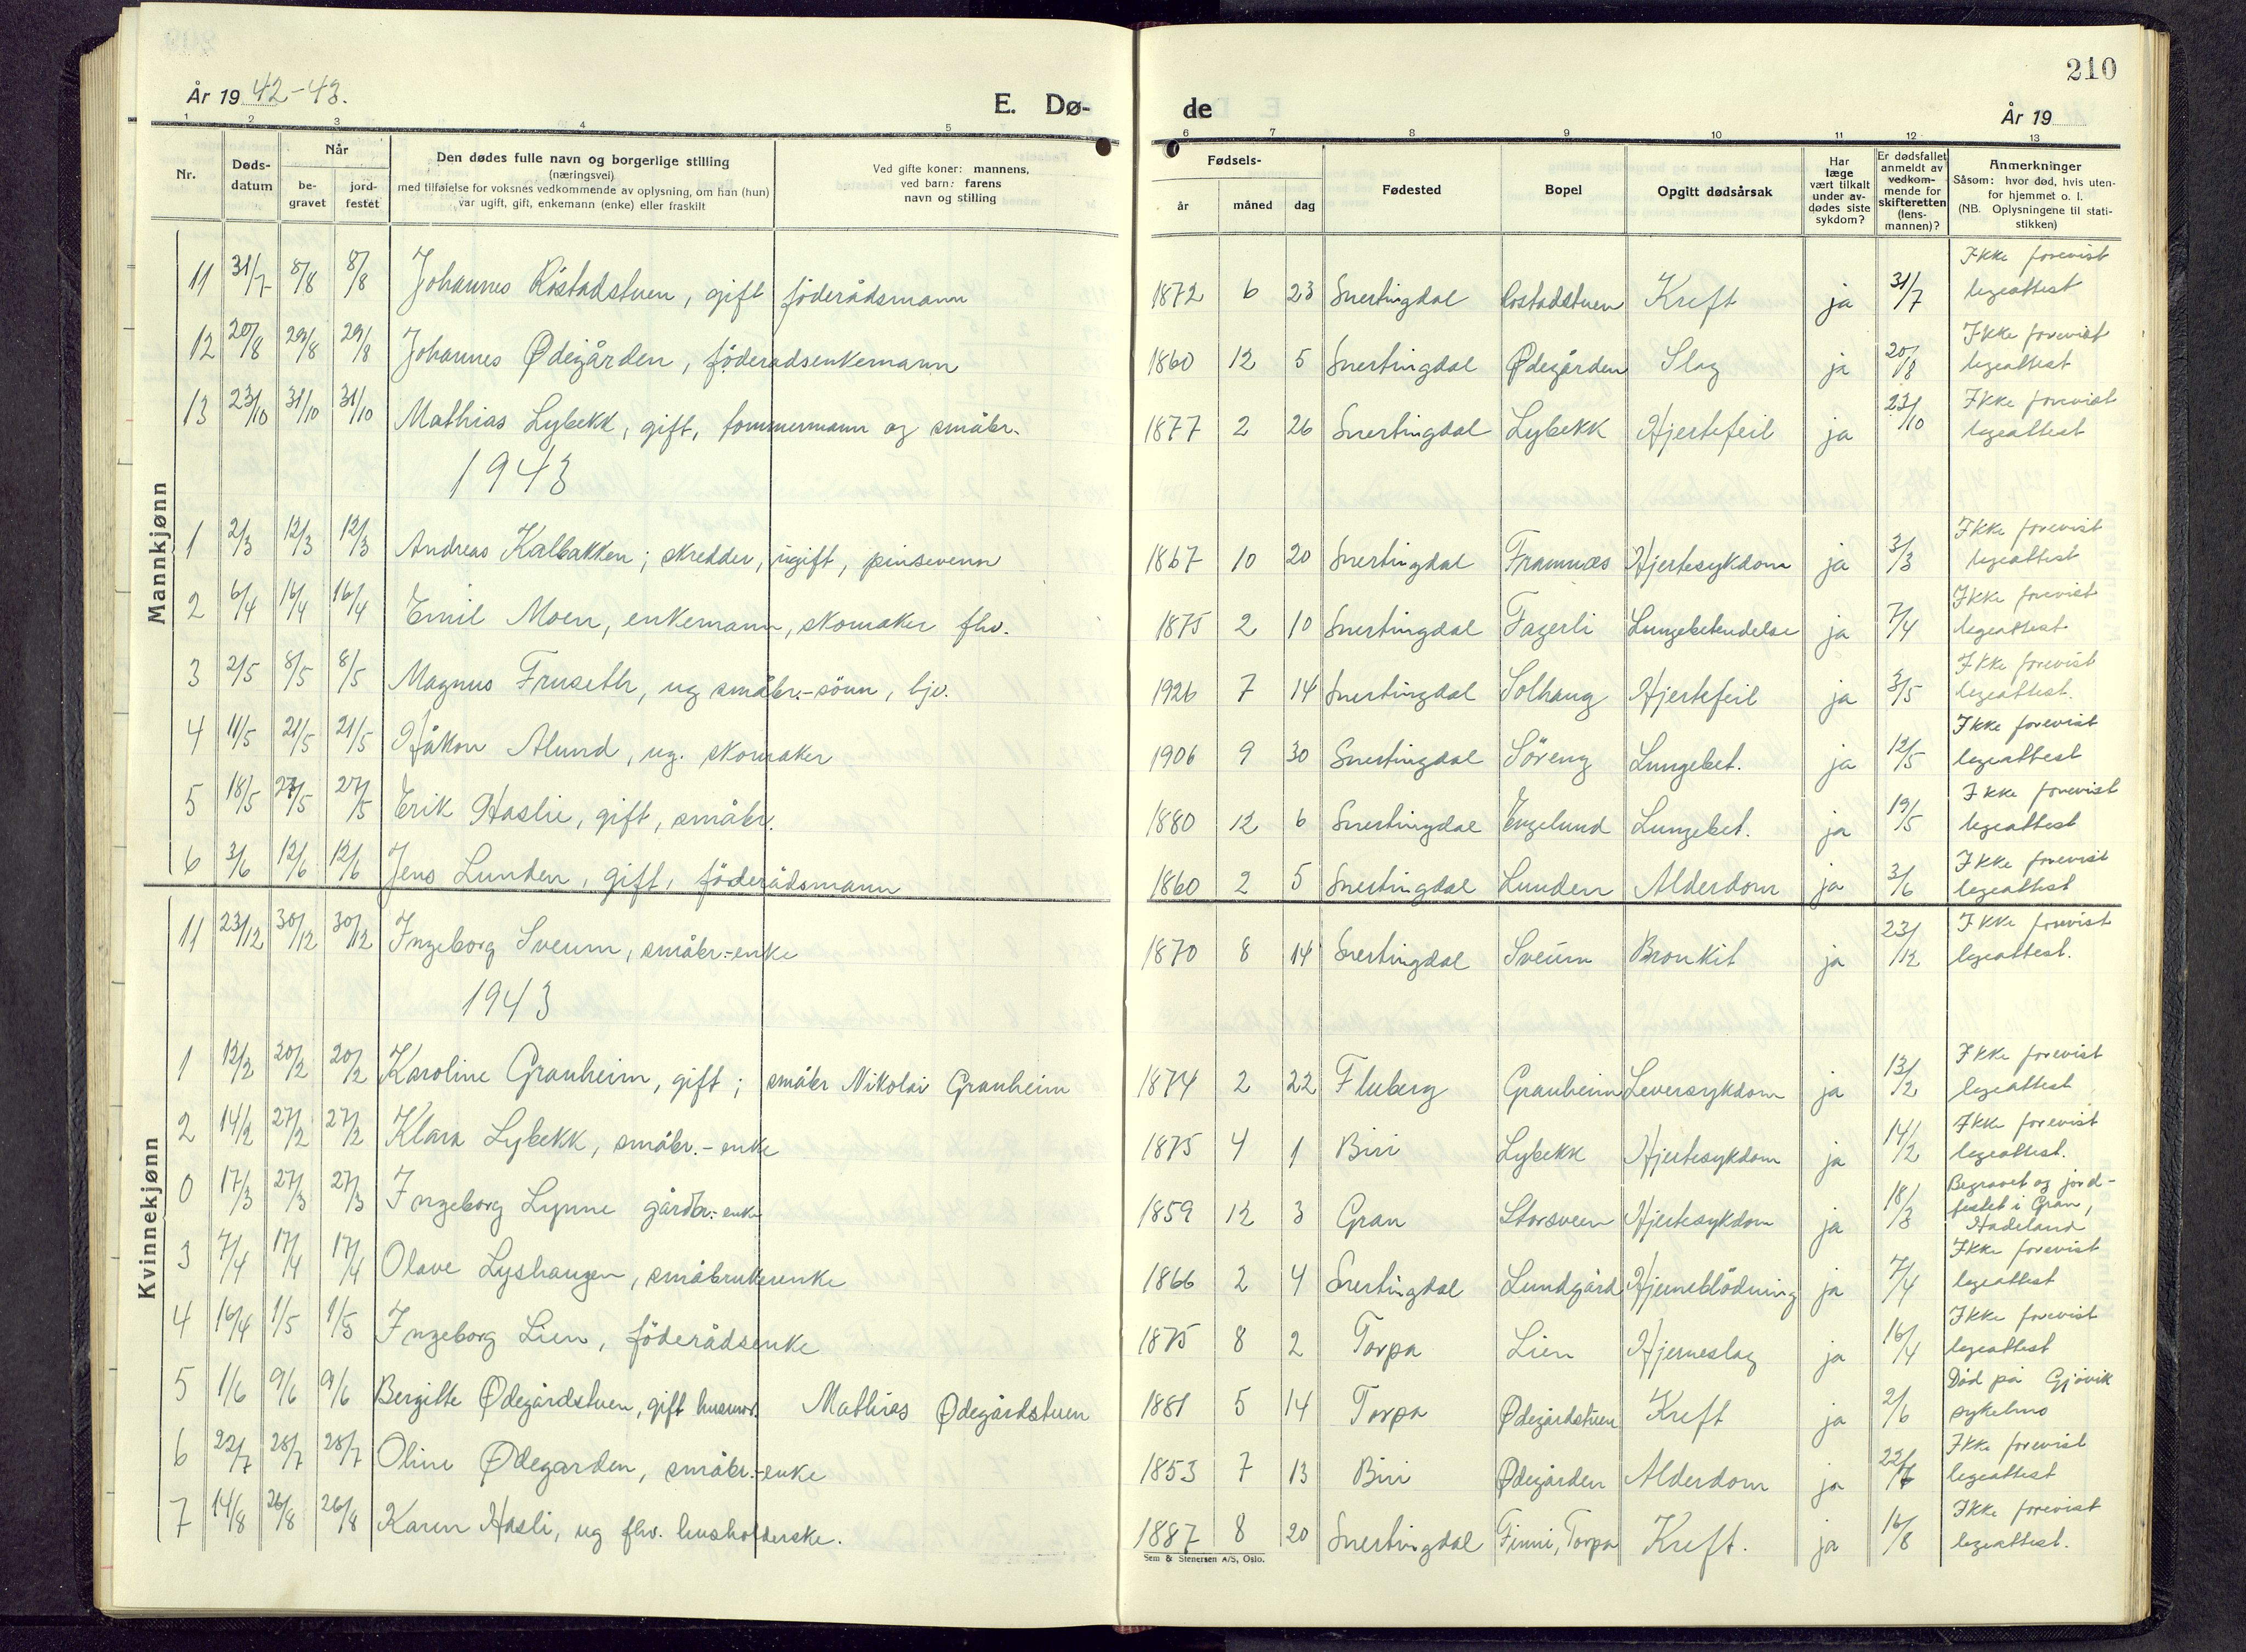 210
År 19 42-43.
E. Dø- de
År 19
1 2 3 4 5 6 7 8 9 10 11 12 13
Nr.
Døds-datum
Når
be-gravet
jord-festet
Den dødes fulle navn og borgerlige stilling
(næringsvei)
med tilføielse for voksnes vedkommende av oplysning, om han (hun)
var ugift, gift, enkemann (enke) eller fraskilt
Ved gifte koner: mannens,
ved barn: farens
navn og stilling
Fødsels-
år måned dag
Fødested
Bopel
Opgitt dødsårsak
Har læge vært tilkalt under av-dødes siste sykdom?
Er dødsfallet anmeldt av vedkom-mende for skifteretten (lens-mannen)?
Anmerkninger
Såsom: hvor død, hvis uten-
for hjemmet o. l.
(NB. Oplysningene til stati-
stikken)
Mannkjønn
11 31/7 8/8 8/8 Johannes Röstadstuen, gift föderådsmann 1872 6 23 Snertingdal Röstadstuen Kreft ja 31/7 Ikke forevist legeattest
12 20/8 29/8 29/8 Johannes Ødegården, föderadsenkemann 1860 12 5 Snertingdal Ødegården Slag ja 20/8 Ikke forevist legeattest
13 23/10 31/10 31/10 Mathias Lybekk, gift, tommermann og småbr. 1877 2 26 Snertingdal Lybekk Hjertefeil ja 23/10 Ikke forevist legeattest
1943
1 2/3 12/3 12/3 Andreas Kalbakken; skredder, ugift, pinsevenn 1867 10 20 Snertingdal Framnæs Hjertesykdom ja 3/3 Ikke forevist legeattest
2 6/4 16/4 16/4 Emil Moen, enkemann, skomaker fhv. 1875 2 10 Snertingdal Fagerli Lungebetendelse ja 7/4 Ikke forevist legeattest
3 2/5 8/5 8/5 Magnus Fruseth, ug småbr.-sönn, hjv. 1926 7 14 Snertingdal Solhaug Hjertefeil ja 3/5 Ikke forevist legeattest.
4 11/5 21/5 21/5 Håkon Alund, ug. skomaker 1906 9 30 Snertingdal Söreng Lungebet. ja 12/5 Ikke forevist legeattest
5 18/5 27/5 27/5 Erik Haslie, gift, småbr. 1880 12 6 Snertingdal Engelund Lungebet. ja 19/5 Ikke forevist legeattest
6 3/6 12/6 12/6 Jens Lunden, gift, föderådsmann 1860 2 5 Snertingdal Lunden Alderdom ja 3/6 Ikke forevist legeattest
Kvinnekjønn
11 23/12 30/12 30/12 Ingeborg Sveum, småbr.-enke 1870 8 14 Snertingdal Sveum Bronkit ja 23/12 Ikke forevist legeattest.
1943
1 12/2 20/2 20/2 Karoline Granheim, gift; småbr Nikolai Granheim 1874 2 22 Fluberg Granheim Leversykdom ja 13/2 Ikke forevist legeattest
2 14/2 27/2 27/2 Klara Lybekk, småbr.-enke 1875 4 1 Biri Lybekk Hjertesykdom ja 14/2 Ikke forevist legeattest.
0 17/3 27/3 27/3 Ingeborg Lynne gårdbr.-enke 1859 12 3 Gran Storsveen Hjertesykdom ja 18/3 Begravet og jord-festet i Gran, Hadeland
3 7/4 17/4 17/4 Olave Lyshaugen, småbrukerenke 1866 2 4 Snertingdal Lundgård Hjerneblödning ja 7/4 Ikke forevist legeattest
4 16/4 1/5 1/5 Ingeborg Lien, föderådsenke 1875 8 2 Torpa Lien Hjerneslag ja 16/4 Ikke forevist legeattest
5 1/6 9/6 9/6 Bergitte Ødegårdstuen, gift husmor. Mathias Ødegårdstuen 1881 5 14 Torpa Ødegårdstuen Kreft ja 2/6 Död på Gjövik sykehus
6 22/7 28/7 28/7 Oline Ødegarden, småbr.-enke 1853 7 13 Biri Ødegården Alderdom ja 22/7 Ikke forevist legeattest
7 14/8 26/8 26/8 Karen Hasli, ug fhv. husholderske. 1887 8 20 Snertingdal Finni, Torpa Kreft. ja 16/8 Ikke forevist legeattest.
Sem & Stenersen A/S, Oslo.